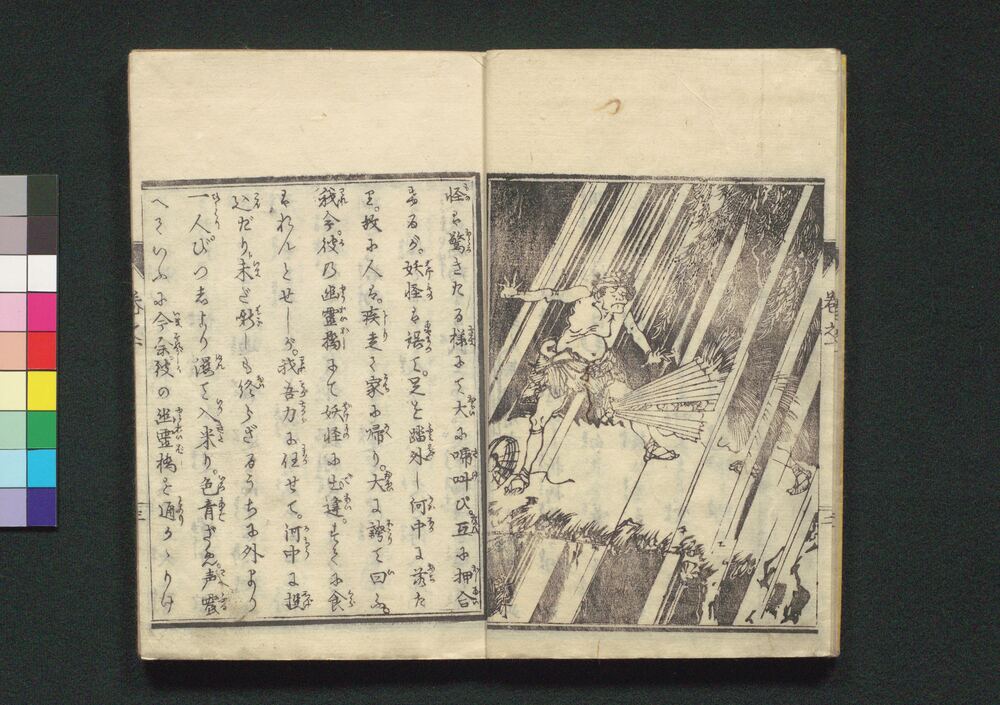 怪は驚きたる様にて大に啼叫び互に押合
けるが。妖怪は誤て。足を踏外し河中に落た
り。扨此人は。疾走て家に帰り。大に誇て曰ふ。
我今。彼乃幽霊橋にて妖怪に出違。すでに食
はれんとせしが。我吾力に任せて。河中に投
込だり。未だ噺しも終らざるうちに外より
一人びつしより濕て入来り。色青ざめ。声震
へていふに今宵彼の幽霊橋を通かゝりけ